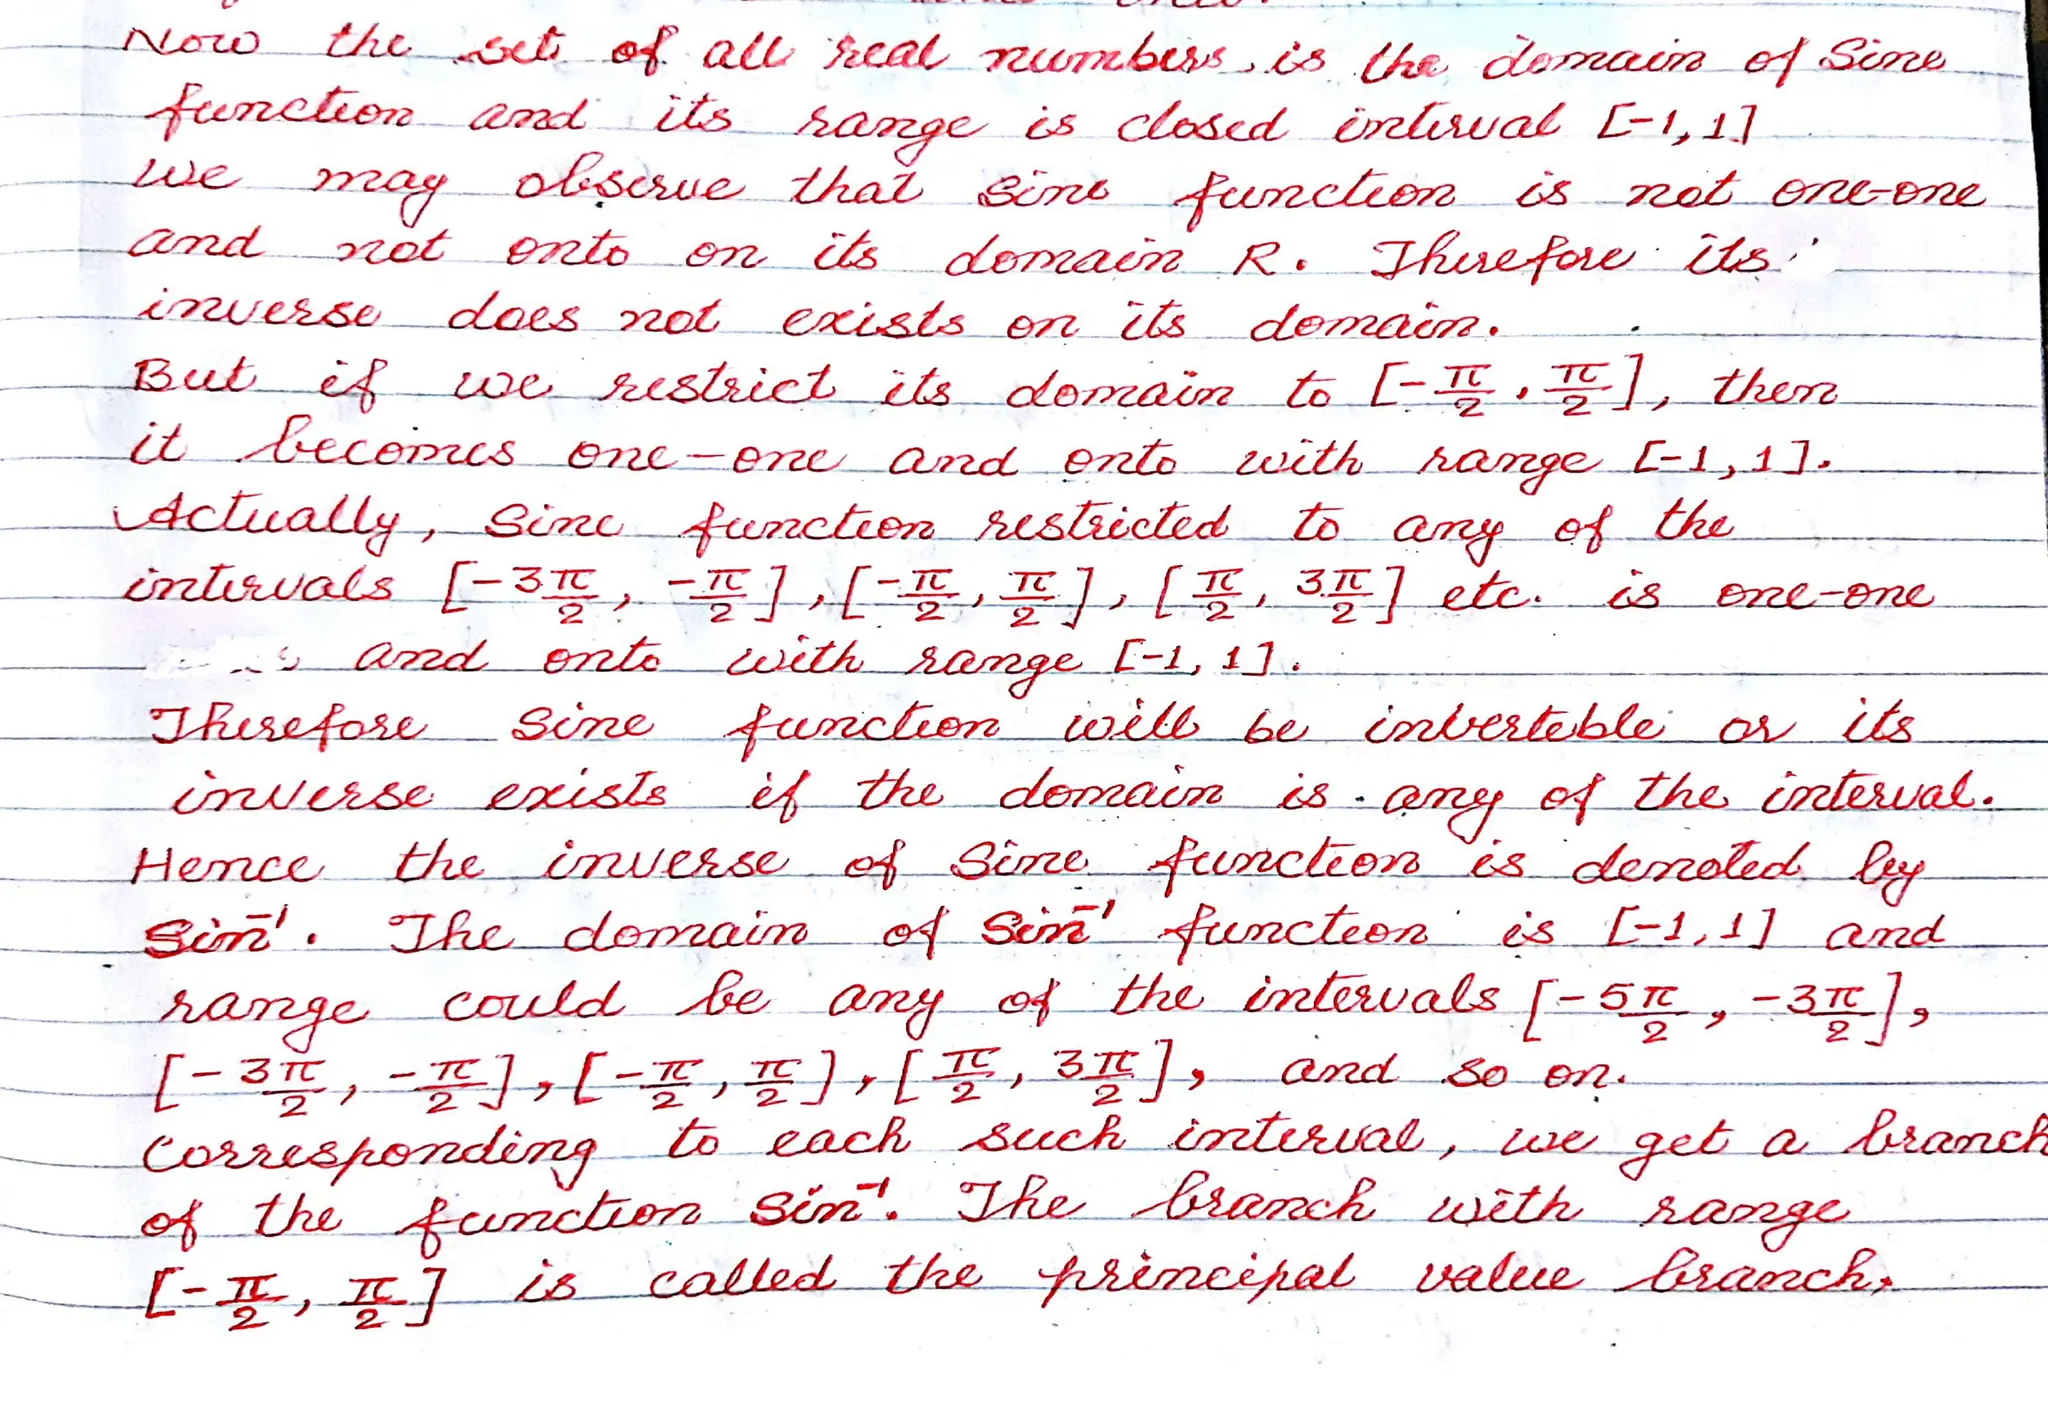 Now the set of all real numbers is the domain of Sine
function and its range is closed interval [-1, 1]
we may observe that Sine function is not one-one
and not onto on its domain R. Therefore its
inverse does not exists on its domain.
But if we restrict its domain to [-π/2, π/2], then
it becomes one-one and onto with range [-1, 1].
Actually, Sine function restricted to any of the
intervals [-3π/2, -π/2], [-π/2, π/2], [π/2, 3π/2] etc. is one-one
and onto with range [-1, 1].
Therefore Sine function will be inverteble or its
inverse exists if the domain is any of the interval.
Hence the inverse of Sine function is denoted by
Sin⁻¹. The domain of Sin⁻¹ function is [-1, 1] and
range could be any of the intervals [-5π/2, -3π/2],
[-3π/2, -π/2], [-π/2, π/2], [π/2, 3π/2], and so on.
Corresponding to each such interval, we get a branch
of the function Sin⁻¹. The branch with range
[-π/2, π/2] is called the principal value branch,